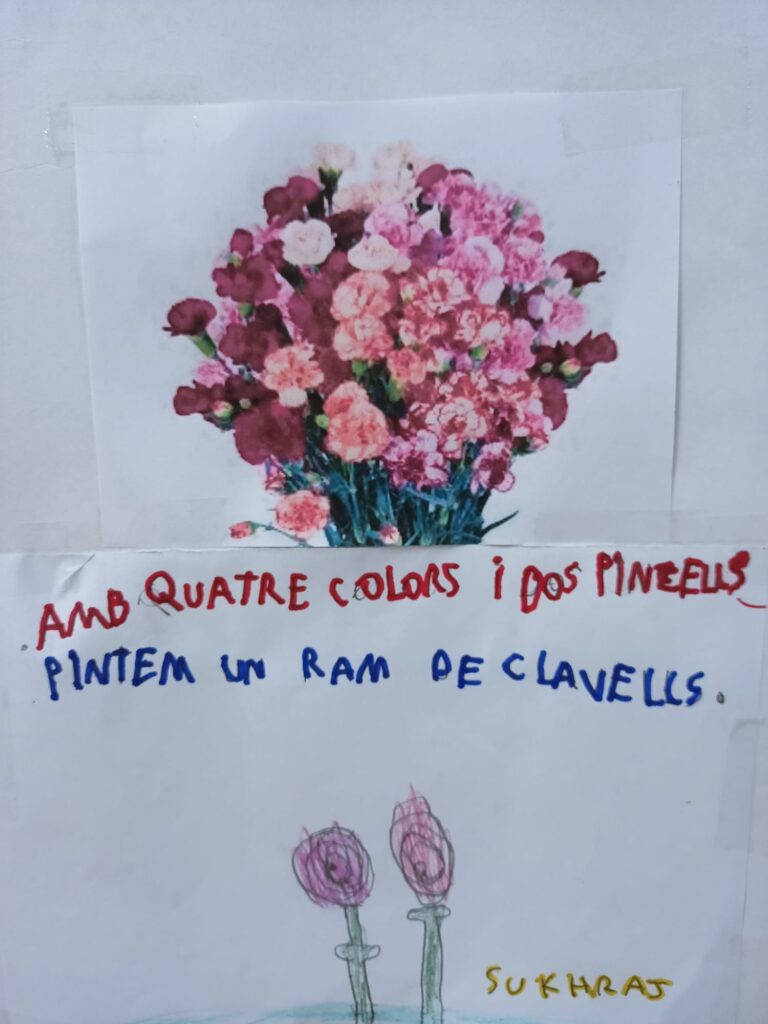 AMB QUATRE COLORS i DOS PINZELLS
PINTEM UN RAM DE CLAVELLS.
SUKHRAJ